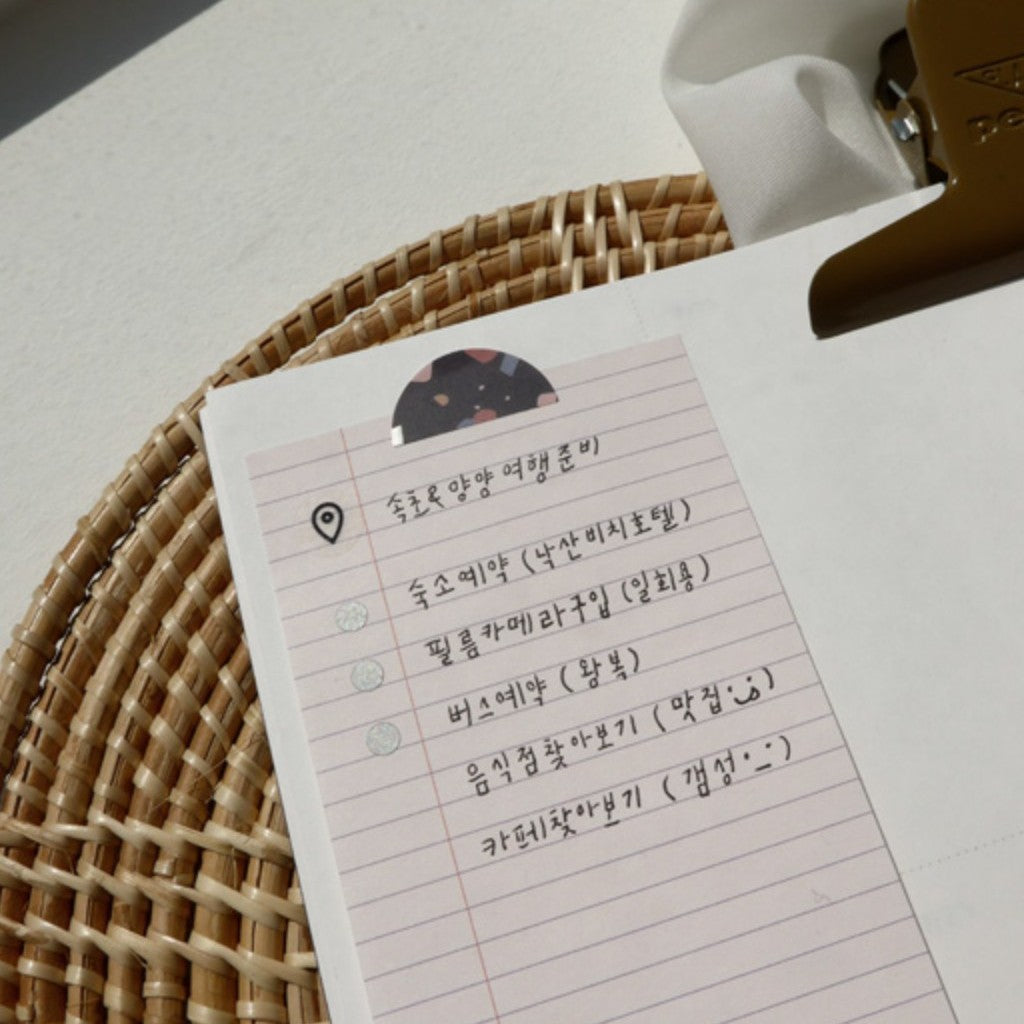 pe
속초&양양 여행준비
숙소예약 (낙산비치호텔)
필름카메라구입 (일회용)
버스예약 (왕복)
음식점찾아보기 (맛집
카페찾아보기 (갬성